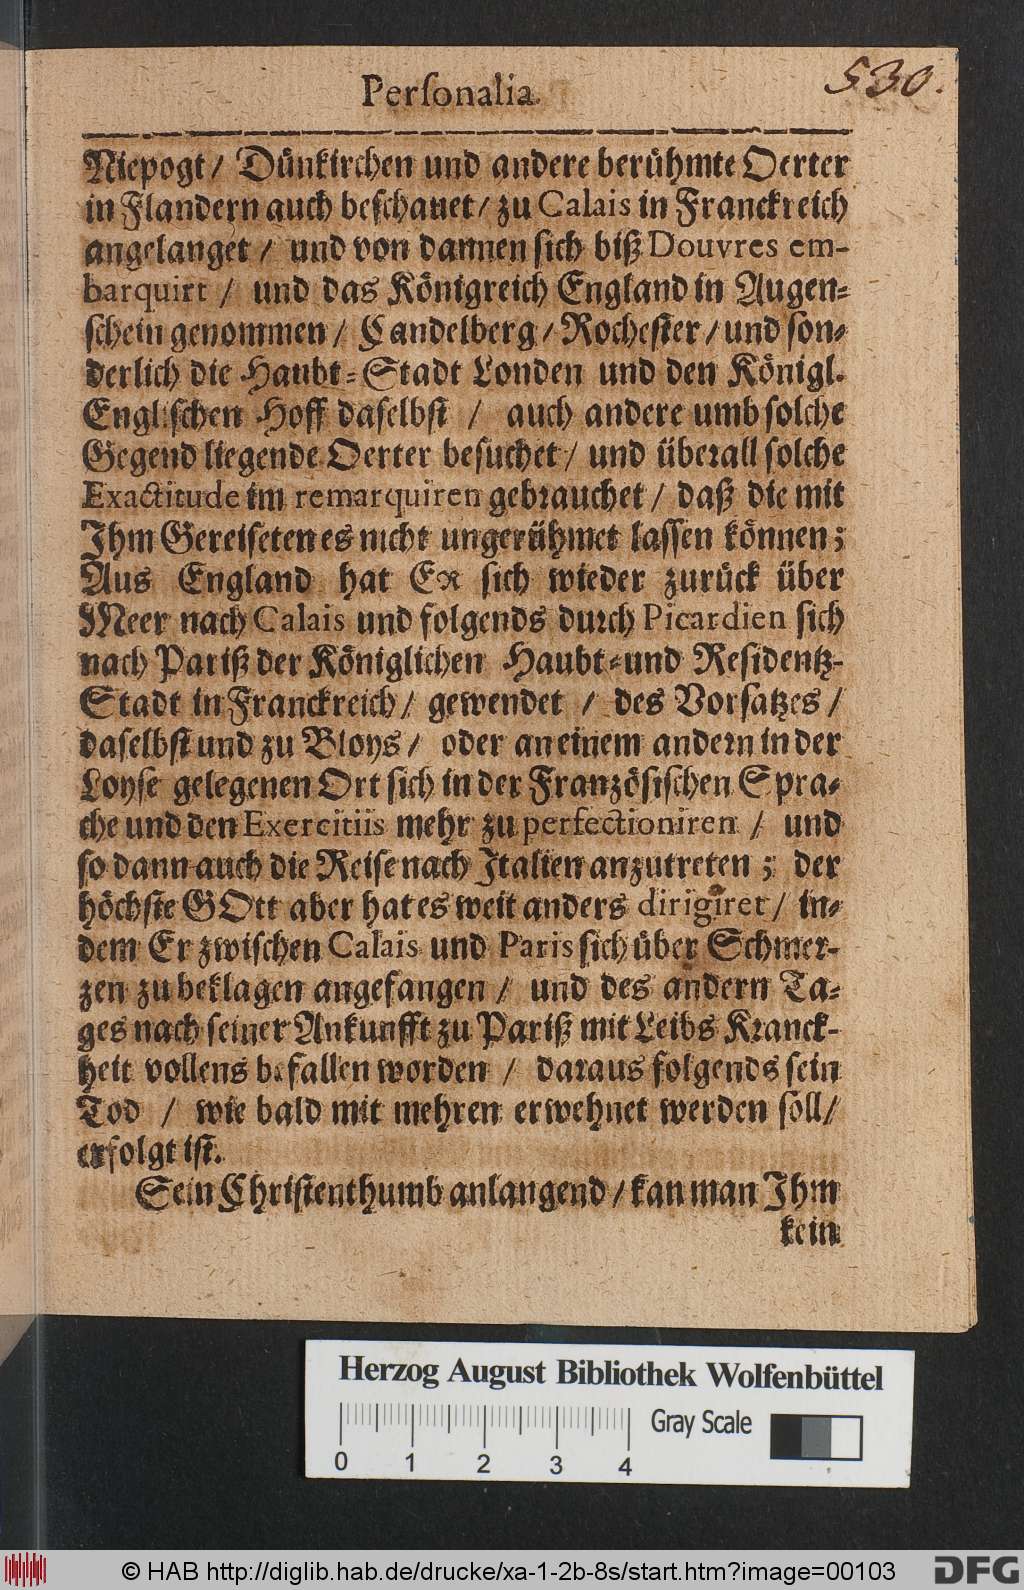 Personalia.
530.
Niepogt / Dünkirchen und andere berühmte Oerter
in Flandern auch beschauet / zu Calais in Franckreich
angelanget / und von dannen sich biß Douvres em-
barquirt / und das Königreich England in Augen-
schein genommen / Candelberg / Rochester / und son-
derlich die Haubt-Stadt Londen und den Königl.
Englischen Hoff daselbst / auch andere umb solche
Gegend liegende Oerter besuchet / und überall solche
Exactitude im remarquiren gebrauchet / daß die mit
Ihm Gereiseten es nicht ungerühmet lassen können;
Aus England hat Er sich wieder zurück über
Meer nach Calais und folgends durch Picardien sich
nach Pariß der Königlichen Haubt-und Residentz-
Stadt in Franckreich / gewendet / des Vorsatzes /
daselbst und zu Bloys / oder an einem andern in der
Loyse gelegenen Ort sich in der Französischen Spra-
che und den Exercitiis mehr zu perfectioniren / und
so dann auch die Reise nach Italien anzutreten; der
höchste GOtt aber hat es weit anders dirigiret / in-
dem Er zwischen Calais und Paris sich über Schmer-
zen zu beklagen angefangen / und des andern Ta-
ges nach seiner Ankunfft zu Pariß mit Leibs Kranck-
heit vollens befallen worden / daraus folgends sein
Tod / wie bald mit mehren erwehnet werden soll /
erfolgt ist.
Sein Christenthumb anlangend / kan man Ihm
kein
Herzog August Bibliothek Wolfenbüttel
Gray Scale
0 1 2 3 4
© HAB http://diglib.hab.de/drucke/xa-1-2b-8s/start.htm?image=00103
DFG